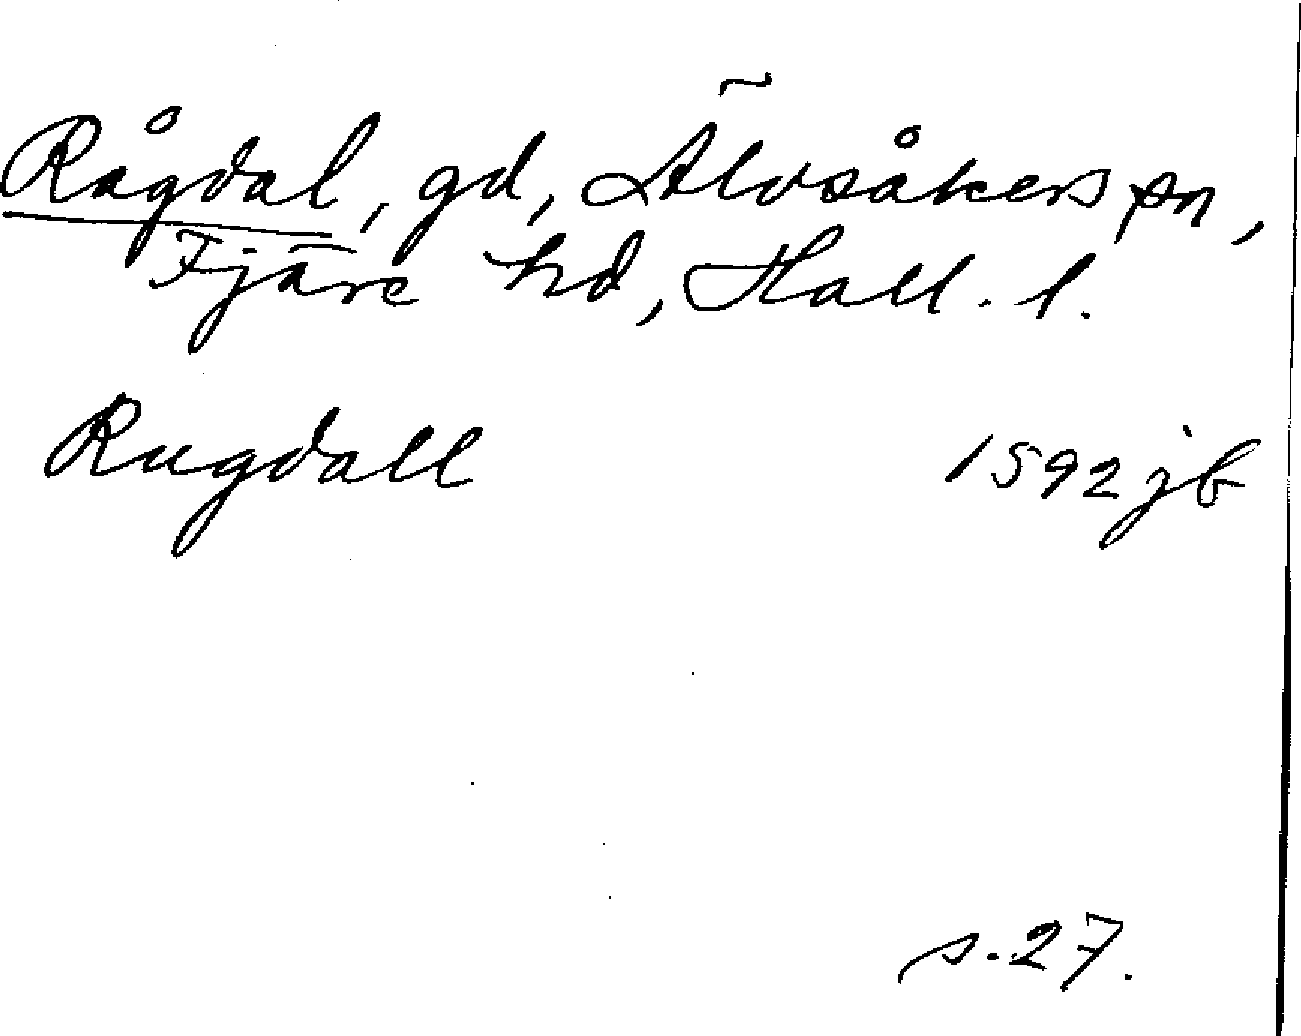 Rågdal, gd, Älvsåkers sn,
Fjäre hd, Hall. l.
Rugdall 1592 jb
s. 27.